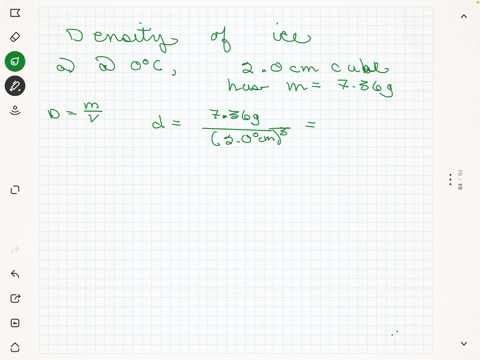 Density of ice
a) @ 0°C, 2.0 cm cube
has m = 7.36g
D = m/V d = 7.36g/(2.0 cm)³ =
64 / 64